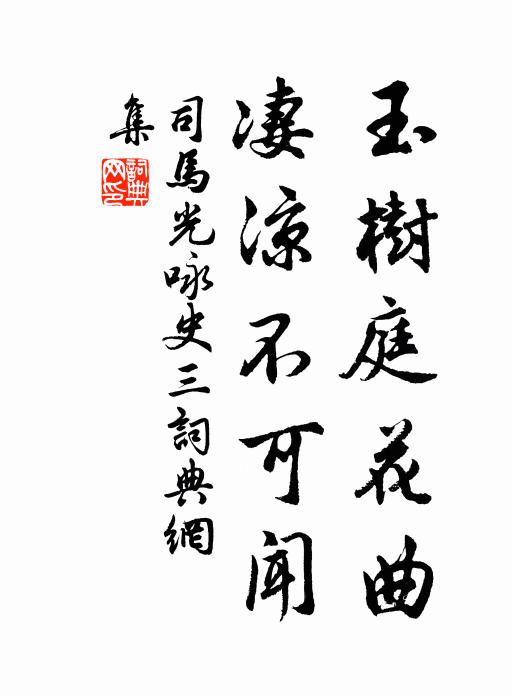 玉樹庭花曲
凄涼不可聞
司馬光咏史三詞典網
集
詞典網印